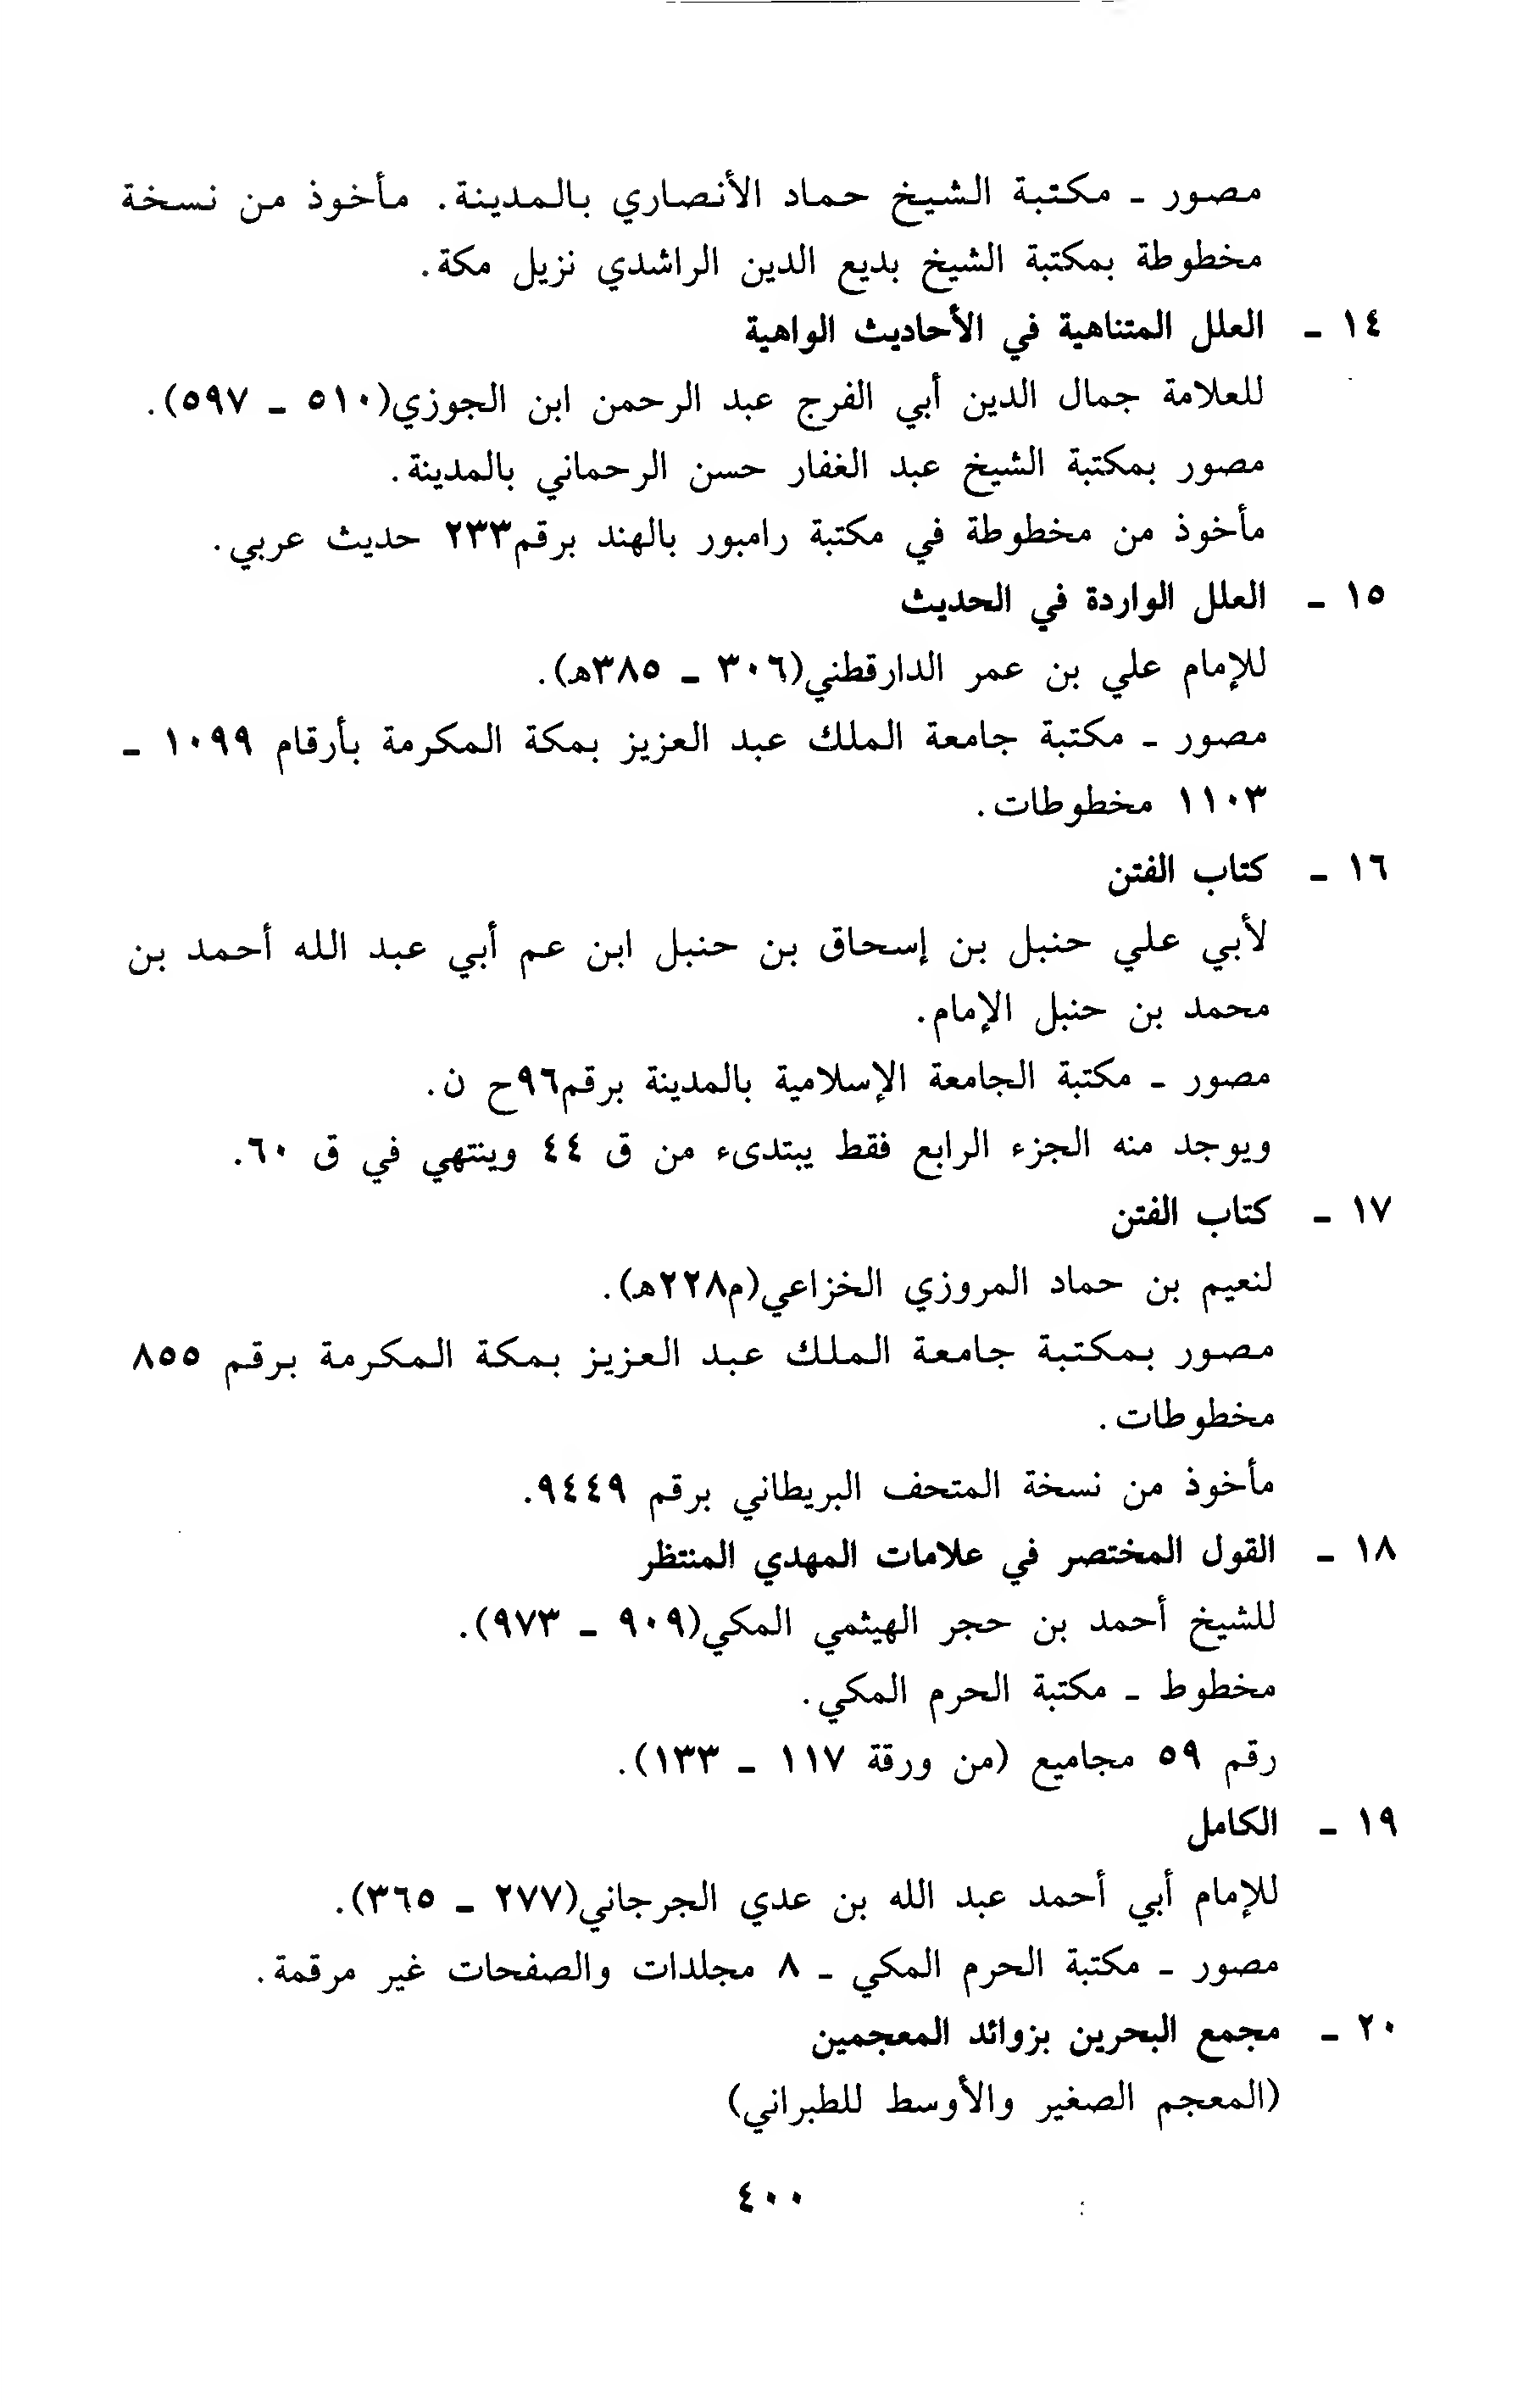 مصور ـ مكتبة الشيخ حماد الأنصاري بالمدينة. مأخوذ من نسخة
مخطوطة بمكتبة الشيخ بديع الدين الراشدي نزيل مكة.
١٤ ـ العلل المتناهية في الأحاديث الواهية
للعلامة جمال الدين أبي الفرج عبد الرحمن ابن الجوزي(٥١٠ ـ ٥٩٧).
مصور بمكتبة الشيخ عبد الغفار حسن الرحماني بالمدينة.
مأخوذ من مخطوطة في مكتبة رامبور بالهند برقم٢٣٣ حديث عربي.
١٥ ـ العلل الواردة في الحديث
للإمام علي بن عمر الدارقطني(٣٠٦ ـ ٣٨٥هـ).
مصور ـ مكتبة جامعة الملك عبد العزيز بمكة المكرمة بأرقام ١٠٩٩ ـ
١١٠٣ مخطوطات.
١٦ ـ كتاب الفتن
لأبي علي حنبل بن إسحاق بن حنبل ابن عم أبي عبد الله أحمد بن
محمد بن حنبل الإمام.
مصور ـ مكتبة الجامعة الإسلامية بالمدينة برقم٩٦ح ن.
ويوجد منه الجزء الرابع فقط يبتدىء من ق ٤٤ وينتهي في ق ٦٠.
١٧ ـ كتاب الفتن
لنعيم بن حماد المروزي الخزاعي(م٢٢٨هـ).
مصور بمكتبة جامعة الملك عبد العزيز بمكة المكرمة برقم ٨٥٥
مخطوطات.
مأخوذ من نسخة المتحف البريطاني برقم ٩٤٤٩.
١٨ ـ القول المختصر في علامات المهدي المنتظر
للشيخ أحمد بن حجر الهيثمي المكي(٩٠٩ ـ ٩٧٣).
مخطوط ـ مكتبة الحرم المكي.
رقم ٥٩ مجاميع (من ورقة ١١٧ ـ ١٣٣).
١٩ ـ الكامل
للإمام أبي أحمد عبد الله بن عدي الجرجاني(٢٧٧ ـ ٣٦٥).
مصور ـ مكتبة الحرم المكي ـ ٨ مجلدات والصفحات غير مرقمة.
٢٠ ـ مجمع البحرين بزوائد المعجمين
(المعجم الصغير والأوسط للطبراني)
٤٠٠